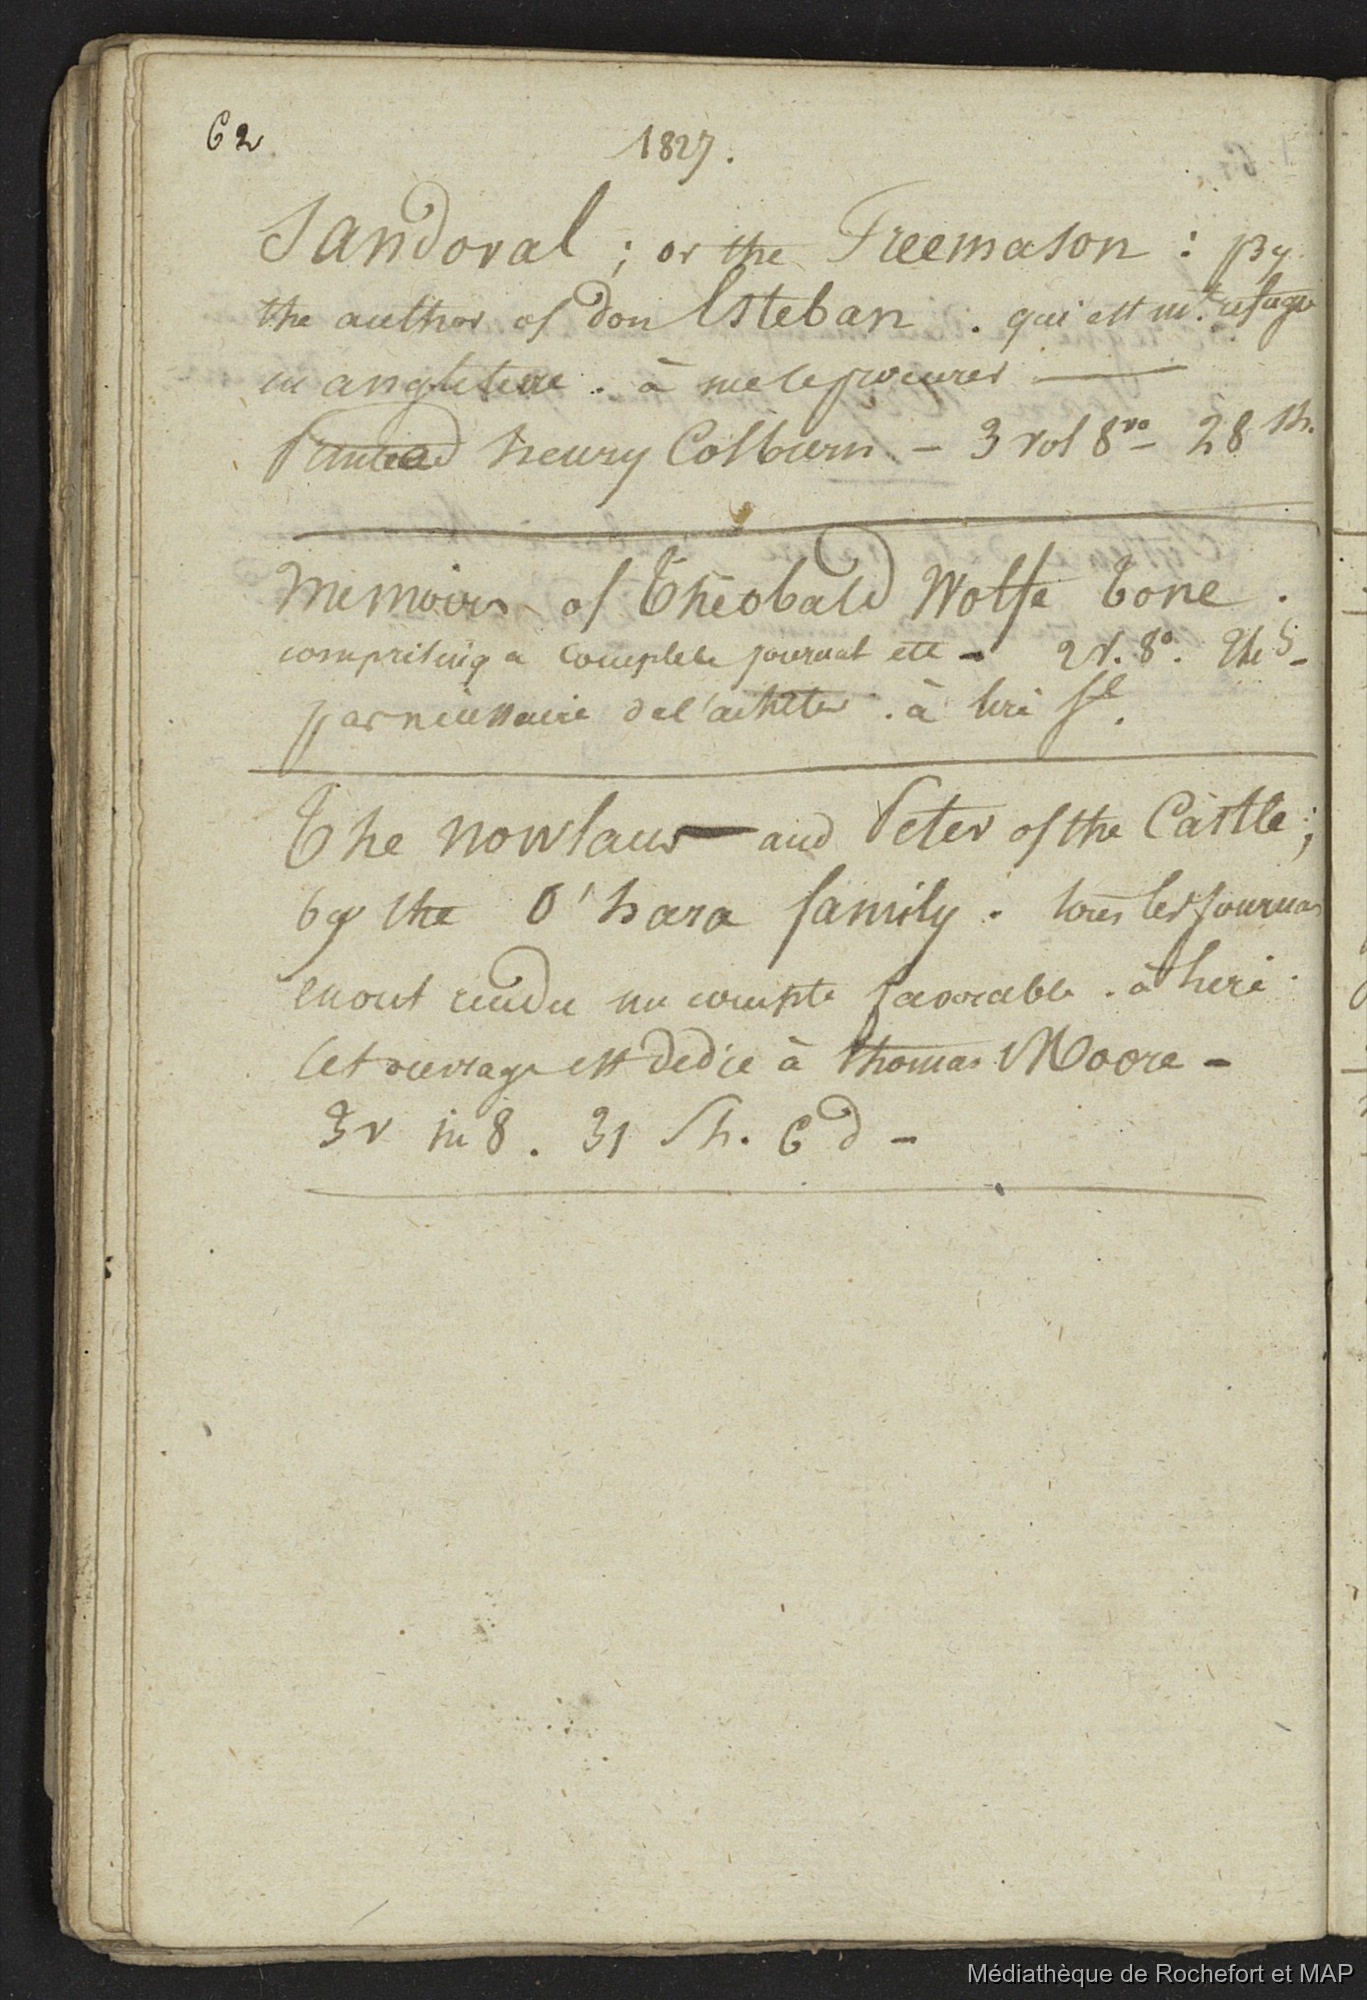 62
1827.
Sandoval ; or the Freemason : By
the author of don Esteban . qui est un refugié
en angleterre . à me le procurer
Printed henry Colburn - 3 vol 8vo - 28 sh.
Memoirs of Theobald Wolfe Tone .
comprising a complete journal etc - 2 v. 8o.
pas necessaire de l'acheter . à lire
The nowlans - and Peter of the Castle ;
by the O'hara family . tous les journaux
en ont rendu un compte favorable . à lire .
Cet ouvrage est dedié à thomas Moore -
3 v in 8 . 31 Sh. 6 d -
Médiathèque de Rochefort et MAP